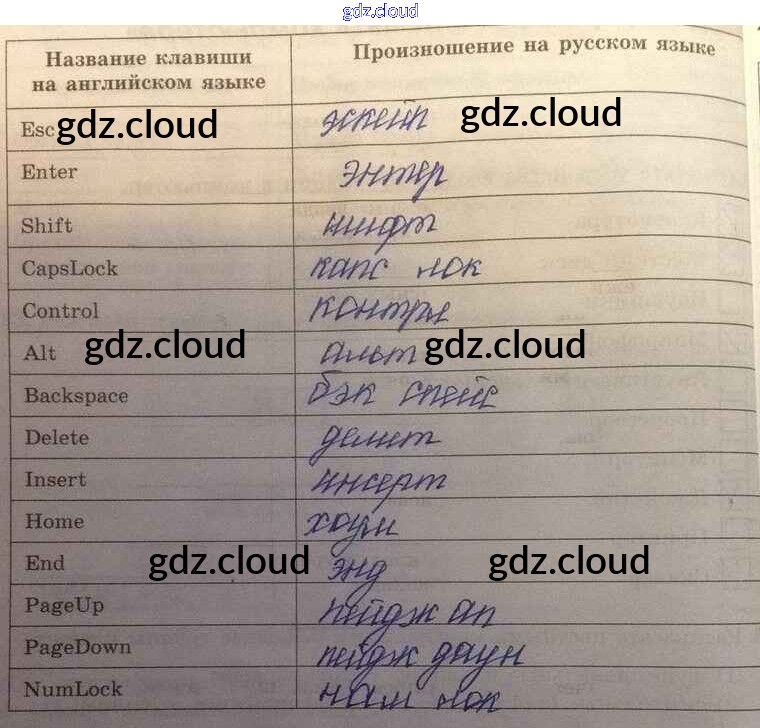 gdz.cloud
Название клавиши на английском языке Произношение на русском языке
Esc gdz.cloud эскейп gdz.cloud
Enter энтер
Shift шифт
CapsLock капс лок
Control контрл
Alt gdz.cloud альт gdz.cloud
Backspace бэк спейс
Delete делит
Insert инсерт
Home хоум
End gdz.cloud энд gdz.cloud
PageUp пейдж ап
PageDown пейдж даун
NumLock нам лок